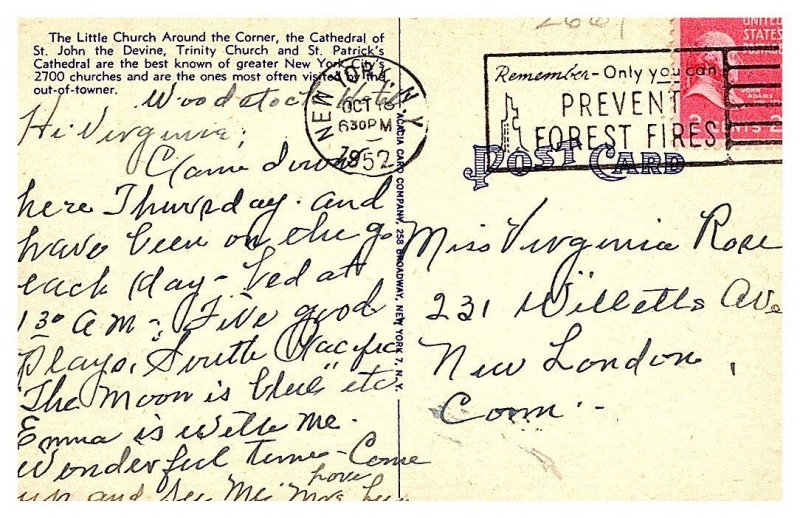 The Little Church Around the Corner, the Cathedral of
St. John the Devine, Trinity Church and St. Patrick's
Cathedral are the best known of greater New York City's
2700 churches and are the ones most often visited by the
out-of-towner.
Woodstock Hotel
Hi Virginia;
Came down
here Thursday. and
have been on the go
each day - bed at
1 30 A M - Five good
plays, South Pacific
"The Moon is blue" etc
Emma is with me.
Wonderful time - Come
up and see me
ACACIA CARD COMPANY, 258 BROADWAY, NEW YORK 7, N.Y.
NEW YORK, N.Y.
OCT 
630PM
1952
Remember - Only you can
PREVENT
FOREST FIRES
UNITED
STATES
JOHN
ADAMS
2 CENTS 2
POST CARD
Miss Virginia Rose
231 Willetts Ave
New London,
Conn -